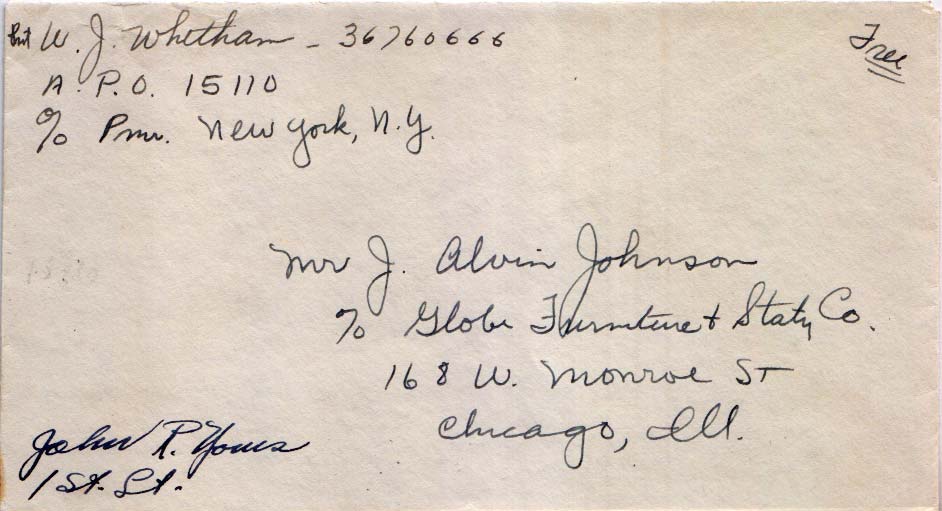 Pvt W. J. Whetham - 36760666
A. P. O. 15110
c/o Pmr. New York, N.Y.
Free
Mr J. Alvin Johnson
c/o Globe Furniture & Staty Co.
168 W. Monroe St
Chicago, Ill.
John R.
1 St. Lt.